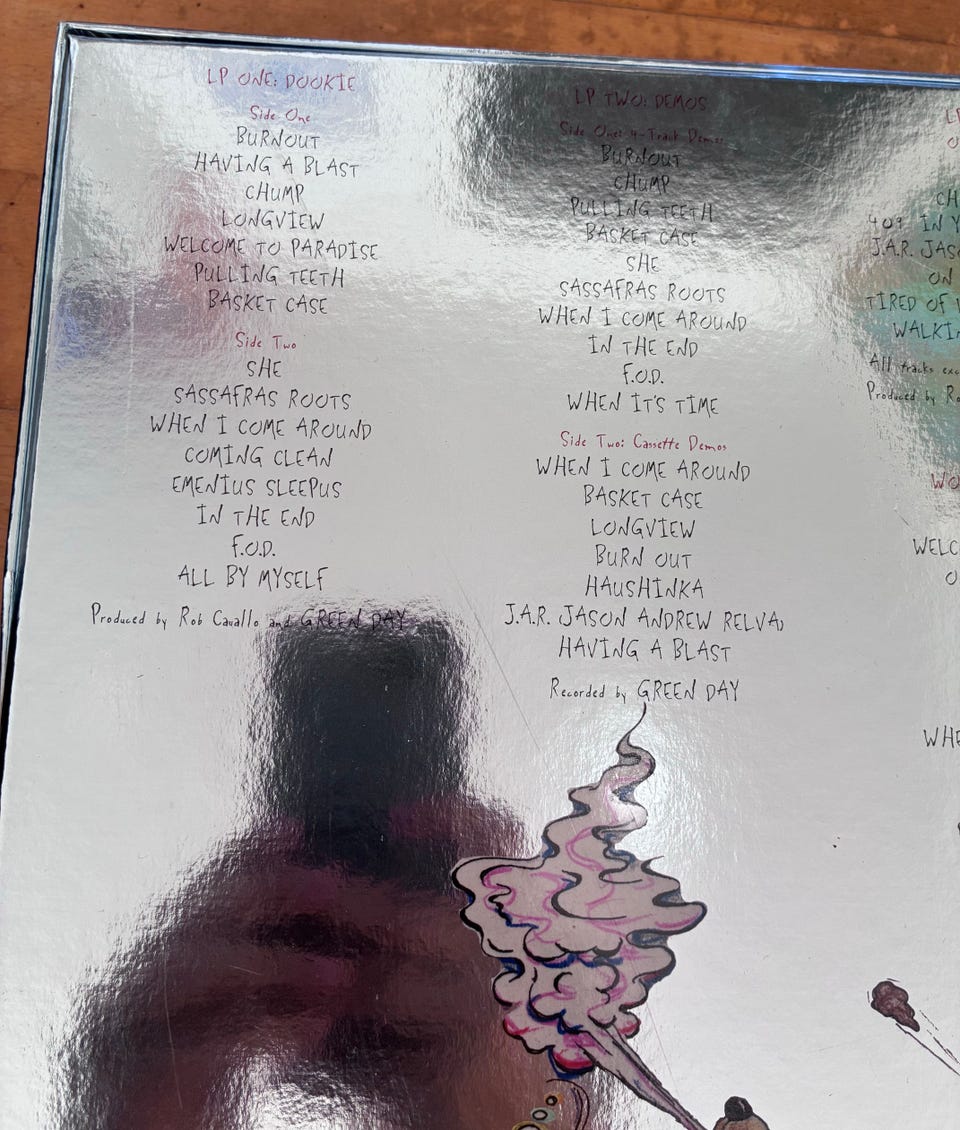 LP ONE: DOOKIE
Side One
BURNOUT
HAVING A BLAST
CHUMP
LONGVIEW
WELCOME TO PARADISE
PULLING TEETH
BASKET CASE
Side Two
SHE
SASSAFRAS ROOTS
WHEN I COME AROUND
COMING CLEAN
EMENIUS SLEEPUS
IN THE END
F.O.D.
ALL BY MYSELF
Produced by Rob Cavallo and GREEN DAY
LP TWO: DEMOS
Side One: 4-Track Demos
BURNOUT
CHUMP
PULLING TEETH
BASKET CASE
SHE
SASSAFRAS ROOTS
WHEN I COME AROUND
IN THE END
F.O.D.
WHEN IT'S TIME
Side Two: Cassette Demos
WHEN I COME AROUND
BASKET CASE
LONGVIEW
BURN OUT
HAUSHINKA
J.A.R. (JASON ANDREW RELVA)
HAVING A BLAST
Recorded by GREEN DAY
LP
CH
407 IN Y
J.A.R. JASO
ON
TIRED OF
WALKIN
All tracks exc
Produced by Ro
WO
WELC
O
WHE